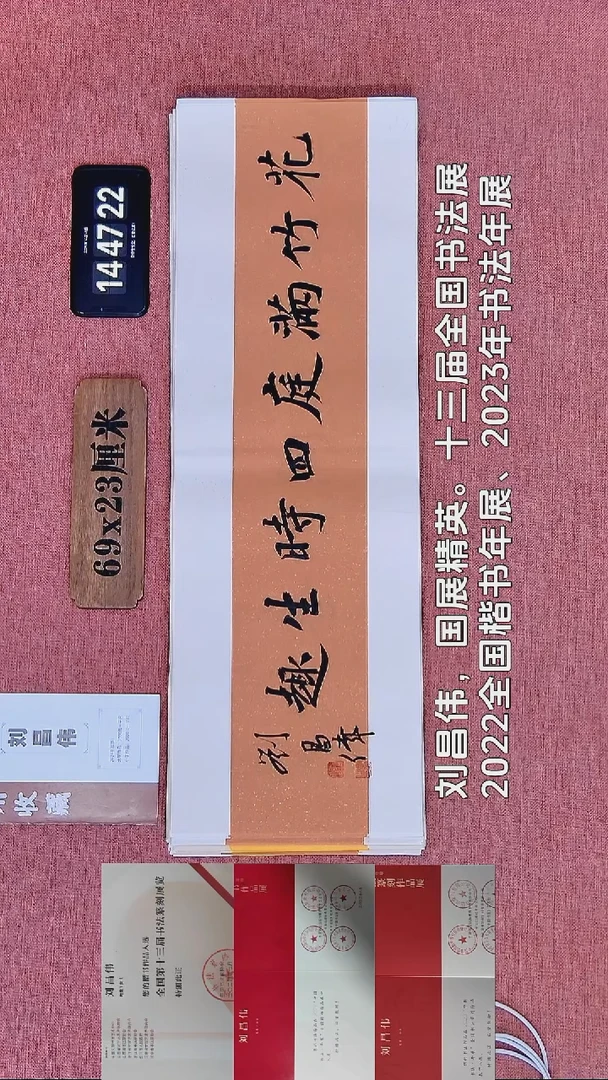 14 47 22
69x23厘米
刘昌伟
收藏
花竹滿庭四時生趣
劉昌偉
刘昌伟，国展精英。十三届全国书法展
2022全国楷书年展、2023年书法年展
刘昌伟
全国第十三届书法篆刻展览
特颁此证
刘昌伟
作品展
刘昌伟
篆刻作品展